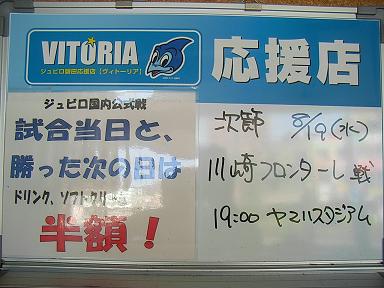 VITORIA
ジュビロ磐田応援店【ヴィトーリア】
応援店
ジュビロ国内公式戦
試合当日と、
勝った次の日は
ドリンク、ソフトクリーム
半額！
次節 8/19(水)
川崎フロンターレ戦
19:00 ヤマハスタジアム